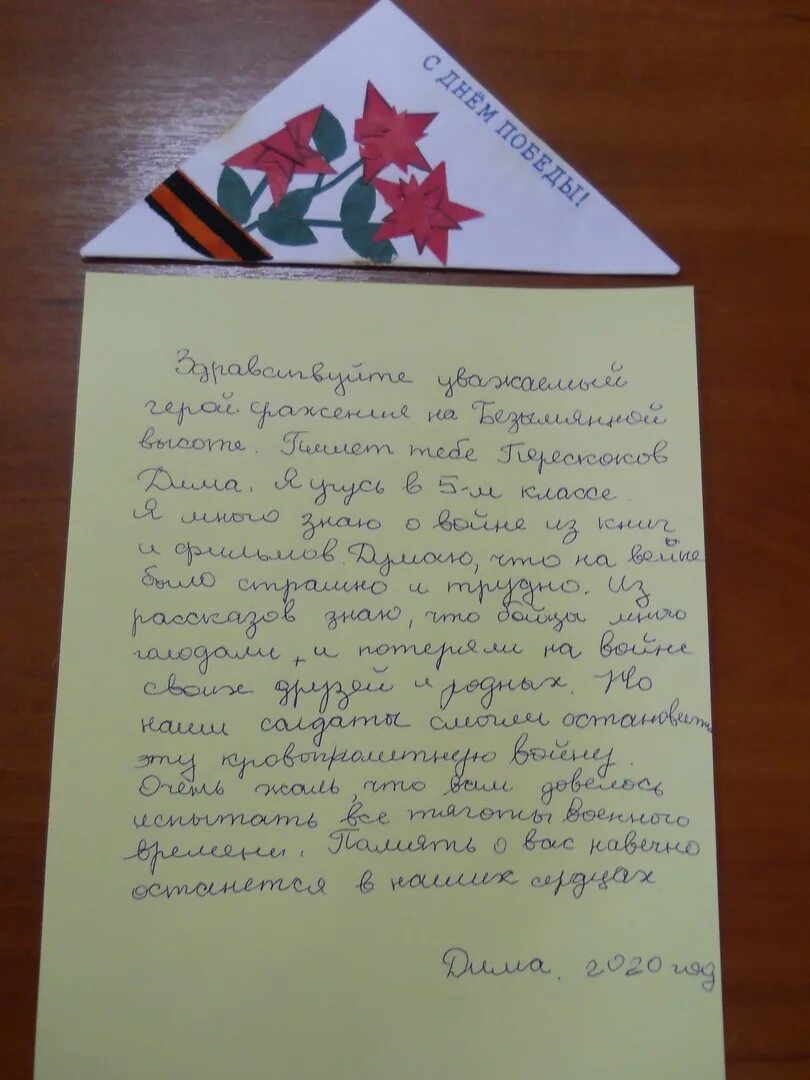 С ДНЁМ ПОБЕДЫ!
Здравствуйте уважаемый
герой сражения на Безымянной
высоте. Пишет тебе Перескоков
Дима. Я учусь в 5-м классе.
Я много знаю о войне из книг
и фильмов. Думаю, что на войне
было страшно и трудно. Из
рассказов знаю, что бойцы много
голодами, и потеряли на войне
своих друзей и родных. Но
наши солдаты смогли остановить
эту кровопролитную войну.
Очень жаль, что вам довелось
испытать все тяготы военного
времени. Память о вас навечно
останется в наших сердцах
Дима. 2020 год